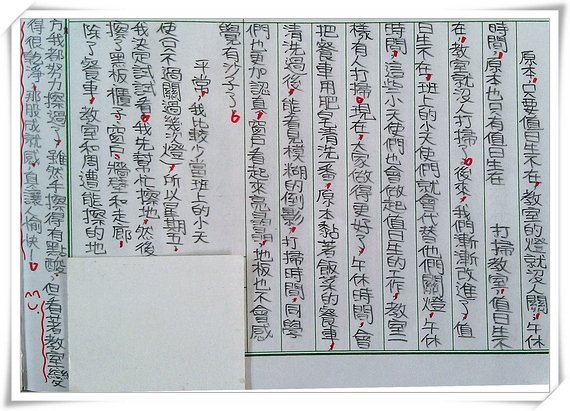 原本,只要值日生不在,教室的燈就沒人關,午休
時間,原本也只有值日生在 打掃教室,值日生不
在,教室就沒人打掃。後來,我們漸漸改進了,值
日生不在,班上的小天使們就會代替他們關燈,午休
時間,這些小天使們也會做起值日生的工作,教室一
樣有人打掃。現在,大家做得更好了,午休時間,會
把餐車用肥皂清洗一番,原本黏著飯菜的餐車,
清洗過後,能看見模糊的倒影,打掃時間,同學
們也更加認真,窗戶看起來亮晶晶,地板也不會感
覺有沙子了。
平常,我比較少當班上的小天
使(只不過關過幾次燈),所以星期五,
我決定試試看。我先幫忙擦地,然後
擦了黑板、櫃子、窗戶、牆壁和走廊,
除了餐車,教室和周遭能擦的地
方我都努力擦過了,雖然手擦得有點酸,但看著教室變
得很乾淨,那股成就感,真讓人愉快!